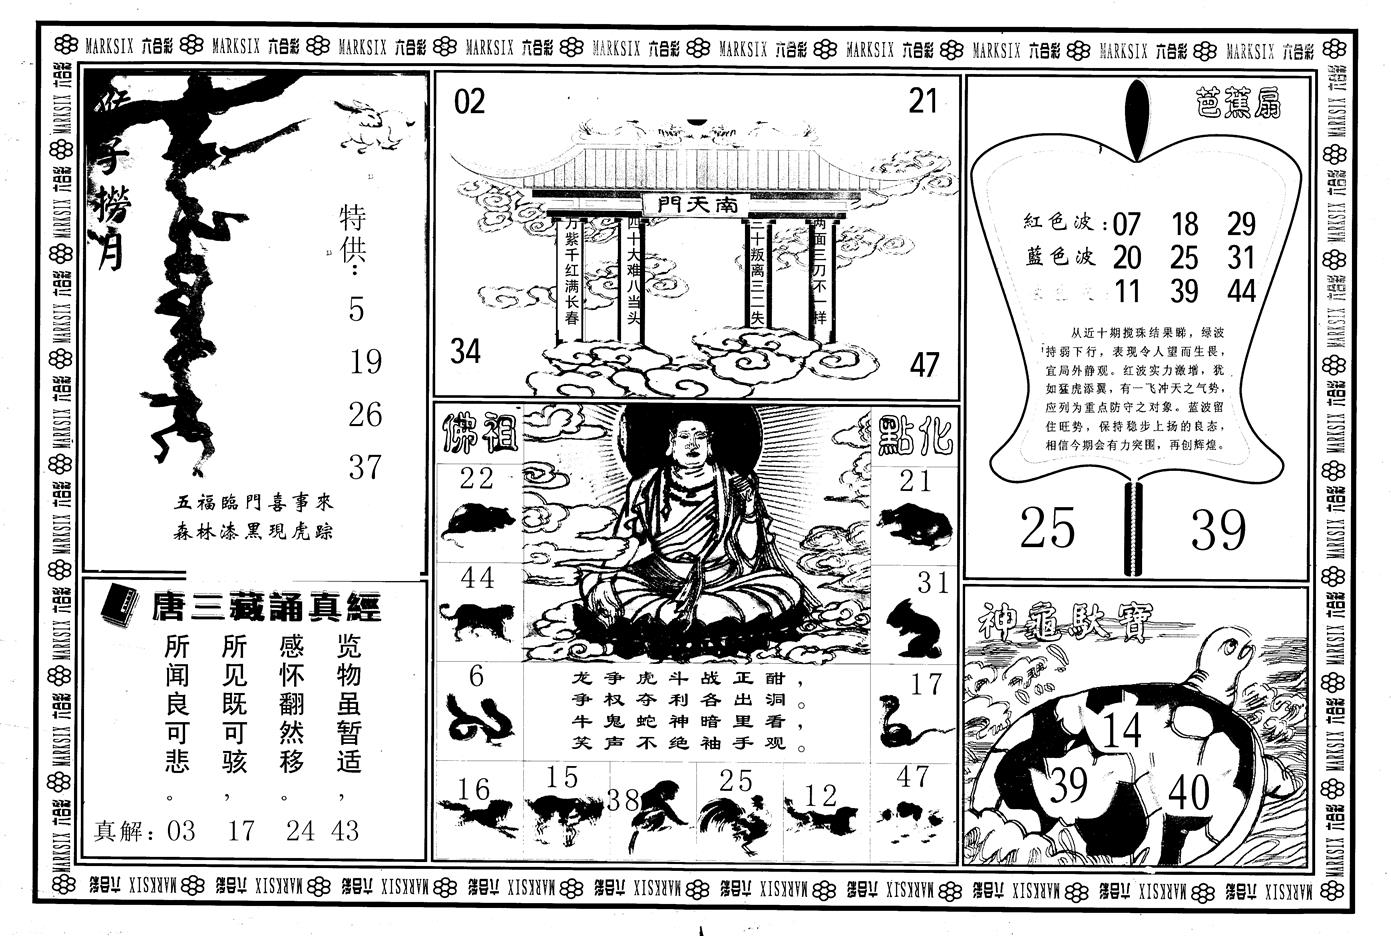 MARKSIX 六合彩 MARKSIX 六合彩 MARKSIX 六合彩 MARKSIX 六合彩 MARKSIX 六合彩 MARKSIX 六合彩 MARKSIX 六合彩 MARKSIX 六合彩 MARKSIX 六合彩 MARKSIX 六合彩
猴子撈月
特供：
5
19
26
37
五福臨門喜事來
森林漆黑現虎踪
唐三藏誦真經
览物虽暂适，
感怀翻然移。
所见既可骇，
所闻良可悲。
真解：03 17 24 43
02
21
南天門
万紫千红满长春
四十大难八当头
三十叛离三二失
两面三刀不一样
34
47
佛祖
點化
22
21
44
31
6
17
龙争虎斗战正酣，
争权夺利各出洞。
牛鬼蛇神暗里看，
笑声不绝袖手观。
16
15
38
25
12
47
芭蕉扇
紅色波：07 18 29
藍色波 20 25 31
11 39 44
从近十期搅珠结果睇，绿波
持弱下行，表现令人望而生畏，
宜局外静观。红波实力激增，犹
如猛虎添翼，有一飞冲天之气势，
应列为重点防守之对象。蓝波留
住旺势，保持稳步上扬的良态，
相信今期会有力突围，再创辉煌。
25
39
神龜馱寶
14
39
40
MARKSIX 六合彩 MARKSIX 六合彩 MARKSIX 六合彩 MARKSIX 六合彩 MARKSIX 六合彩 MARKSIX 六合彩 MARKSIX 六合彩 MARKSIX 六合彩 MARKSIX 六合彩 MARKSIX 六合彩